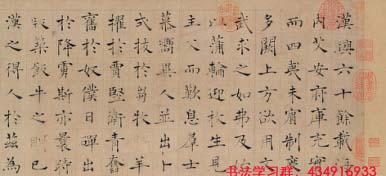 漢興六十餘載海
內艾安府庫充實
而四夷未賓制度
多闕上方欲用文
武求之如弗及始
以蒲輪迎枚生見
主父而歎息群士
慕嚮異人並出卜
式拔於芻牧 羊
擢於賈豎衛青奮
奮於奴僕日磾出
於降虜斯亦曩時
版築飯牛之朋已
漢之得人於茲為
书法学习群：434916933